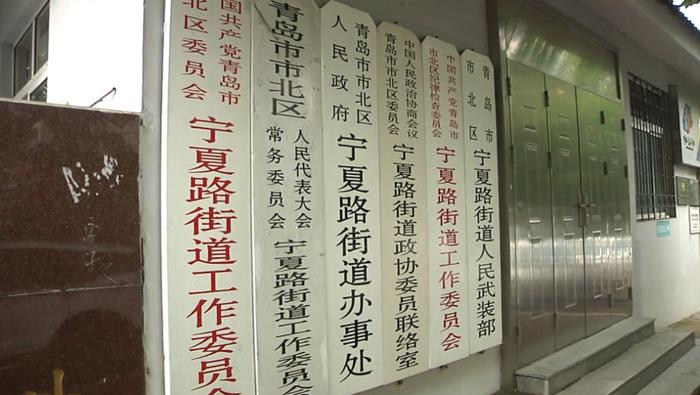 国共产党青岛市
市北区委员会
宁夏路街道工作委员会
青岛市市北区
人民代表大会
常务委员会
宁夏路街道工作委员会
青岛市市北区
人民政府
宁夏路街道办事处
中国人民政治协商会议
青岛市市北区委员会
宁夏路街道政协委员联络室
中国共产党青岛市
市北区纪律检查委员会
宁夏路街道工作委员会
青岛市
市北区
宁夏路街道人民武装部